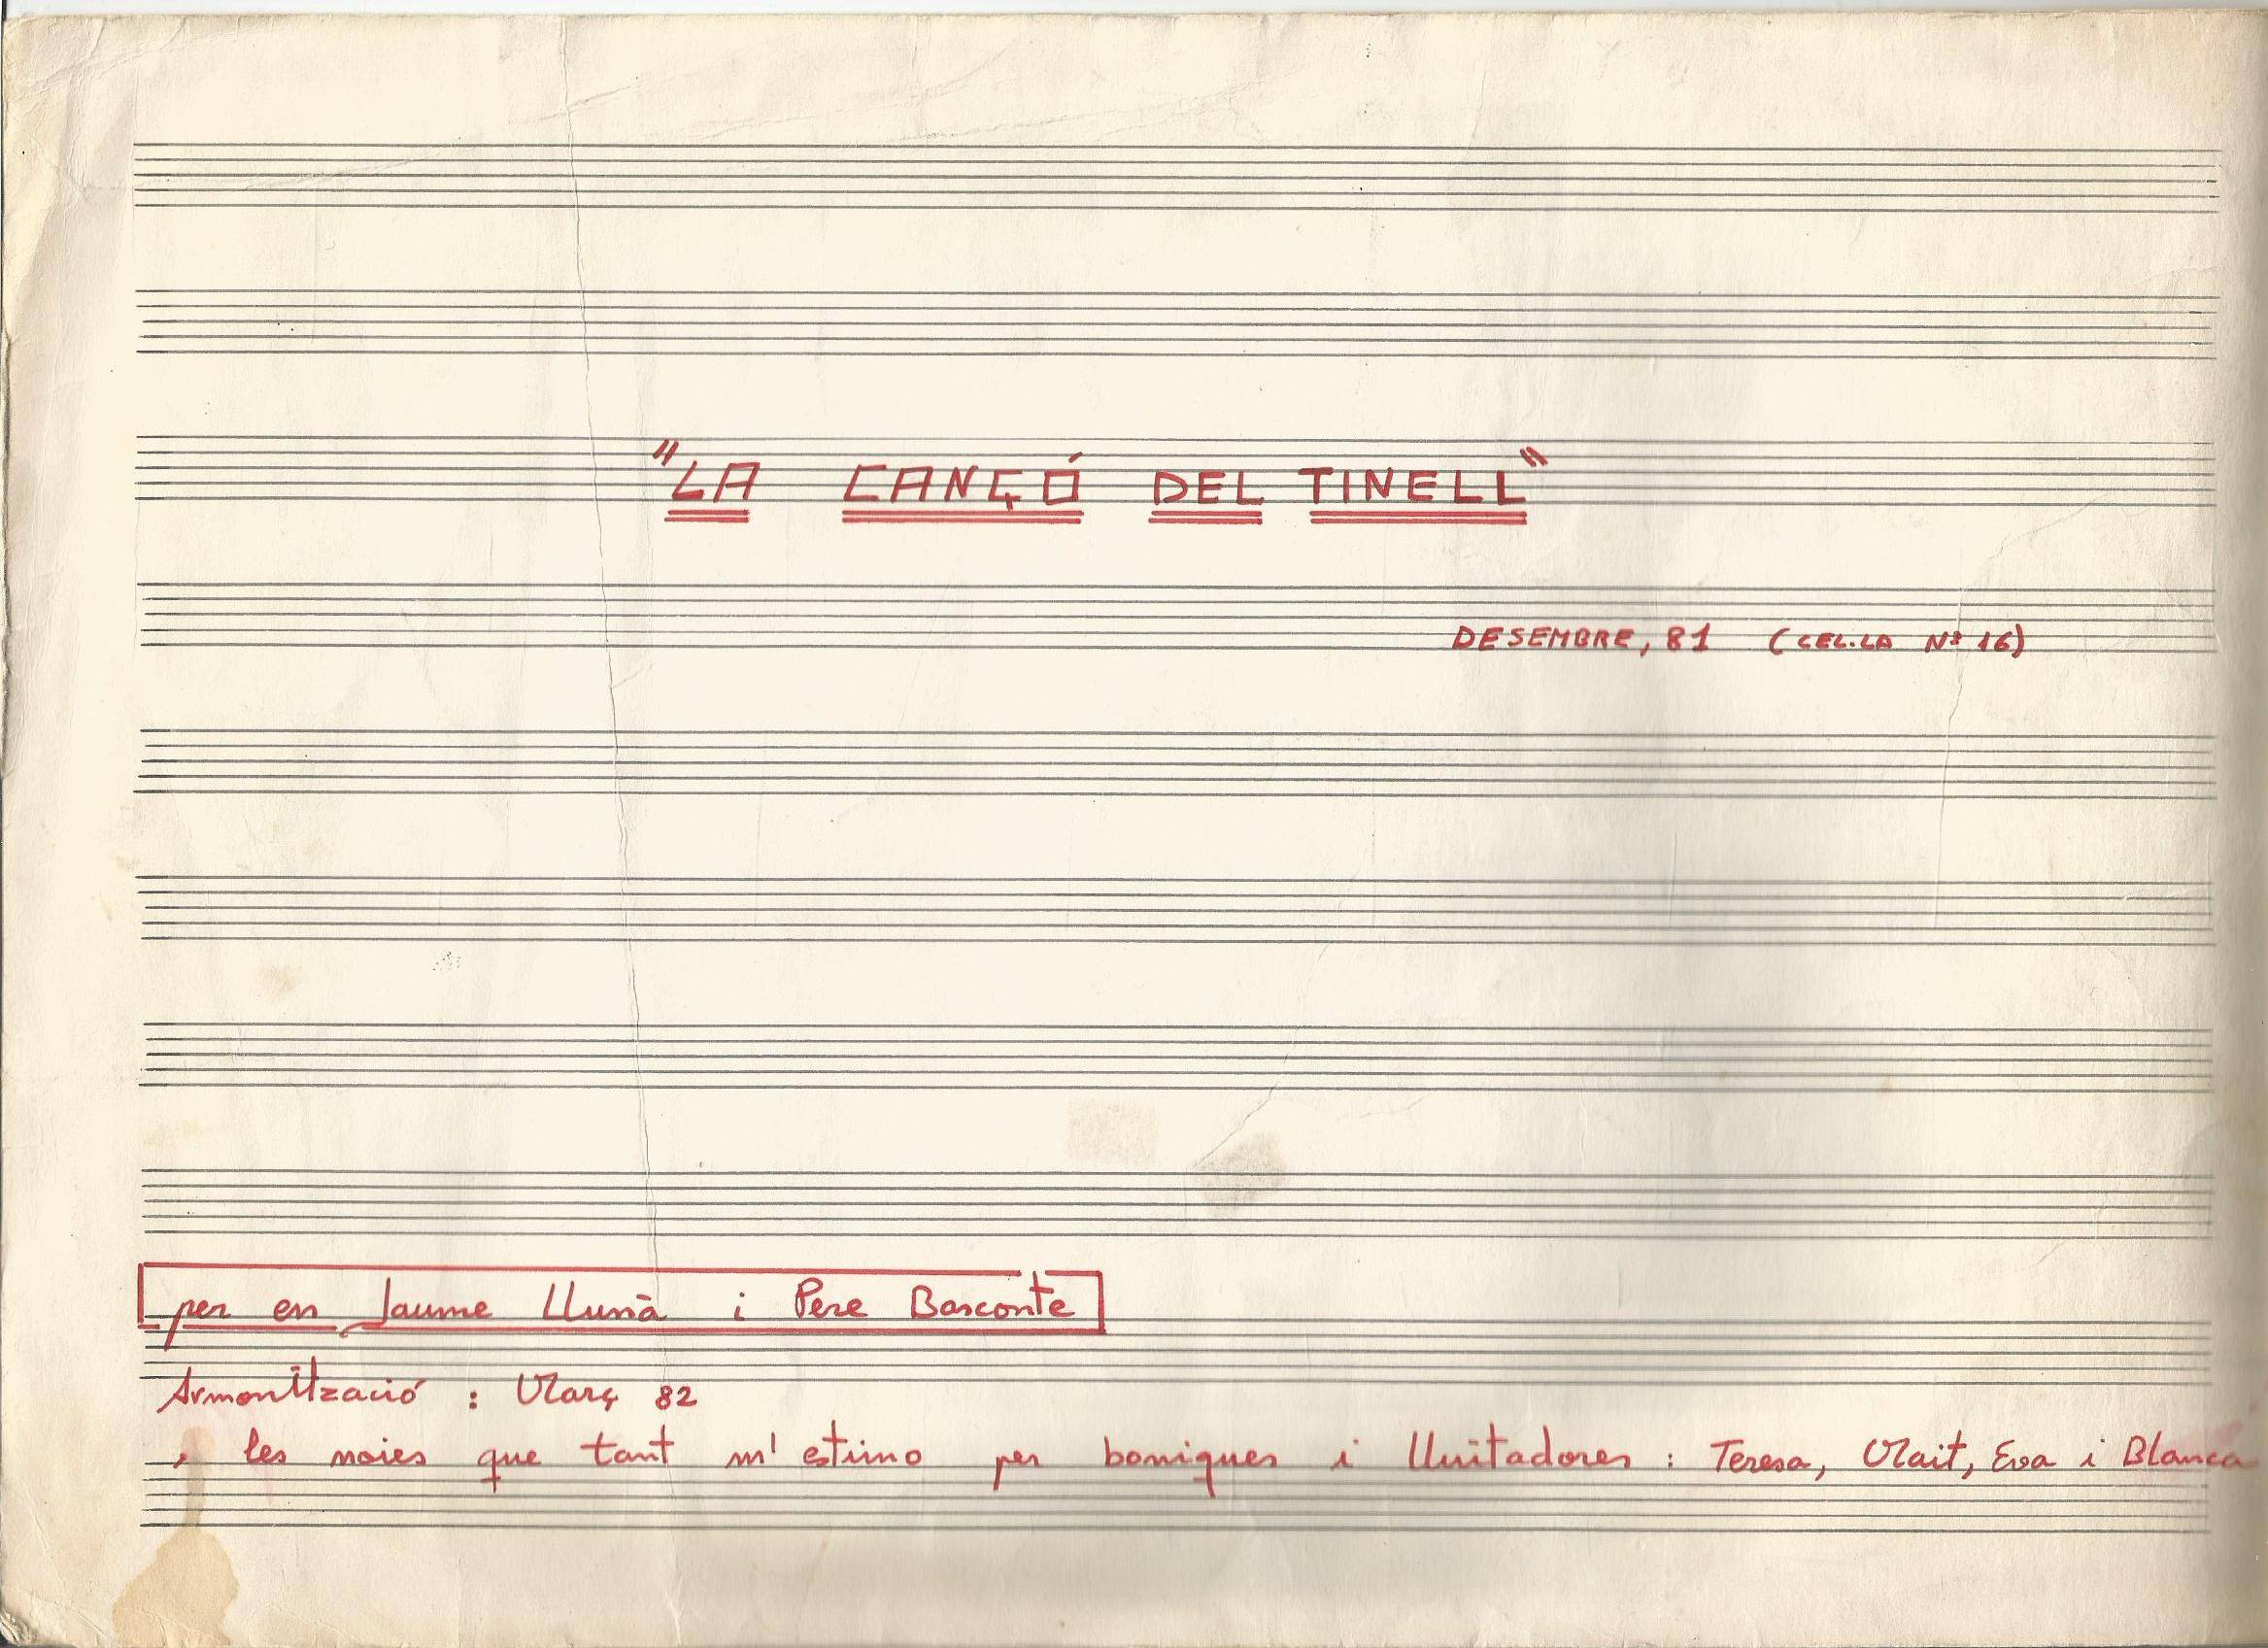 "LA CANÇÓ DEL TINELL"
DESEMBRE, 81 (CEL.LA Nº 16)
per en Jaume Llunà i Pere Basconte
Armonització : Març 82
, les noies que tant m'estimo per boniques i lluitadores : Teresa, Mait, Eva i Blanca